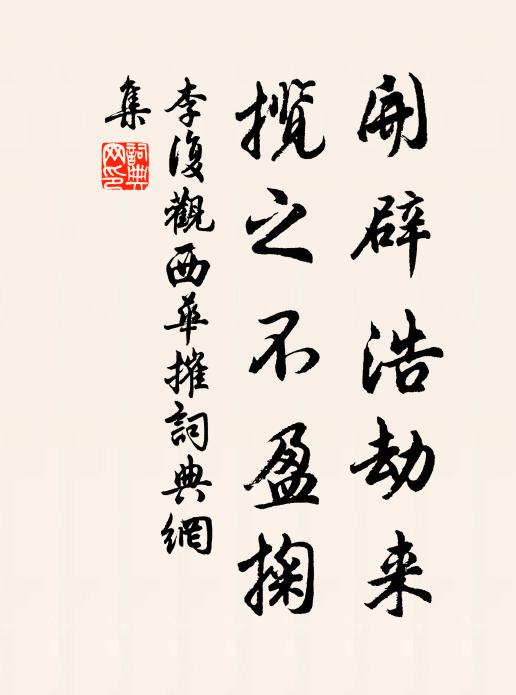 開辟浩劫来
攬之不盈掬
李復觀西華摧詞典網
集
詞典網印